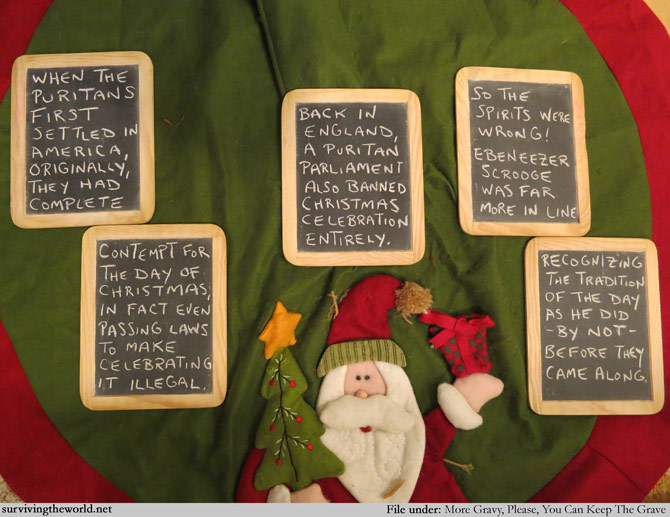 WHEN THE
PURITANS
FIRST
SETTLED IN
AMERICA,
ORIGINALLY,
THEY HAD
COMPLETE
CONTEMPT FOR
THE DAY OF
CHRISTMAS,
IN FACT EVEN
PASSING LAWS
TO MAKE
CELEBRATING
IT ILLEGAL.
BACK IN
ENGLAND,
A PURITAN
PARLIAMENT
ALSO BANNED
CHRISTMAS
CELEBRATION
ENTIRELY.
SO THE
SPIRITS WERE
WRONG!
EBENEEZER
SCROOGE
WAS FAR
MORE IN LINE
RECOGNIZING
THE TRADITION
OF THE DAY
AS HE DID
-BY NOT-
BEFORE THEY
CAME ALONG.
survivingtheworld.net
File under: More Gravy, Please, You Can Keep The Grave.